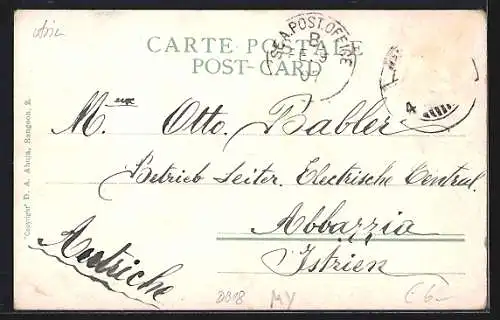 Asien
CARTE POSTALE
POST-CARD
SEA.POST.OFFICE
B
4
M.eux Otto. Babler
Betrieb Leiter. Electrische Central.
Abbazzia
Istrien
Autriche
"Copyright" D. A. Ahuja, Rangoon, 2.
DB18
MY
€6-